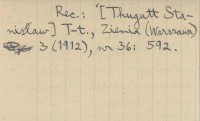 Rec.: [Thugutt Sta-
nisław] T-t., Ziemia (Warszawa)
3 (1912), nr 36: 592.